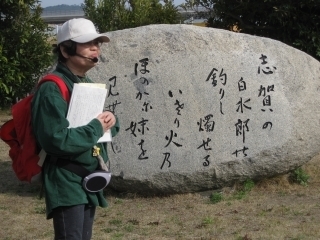 志賀の
白水郎の
釣りし燭せる
いざり火乃
ほのかに妹を
見む